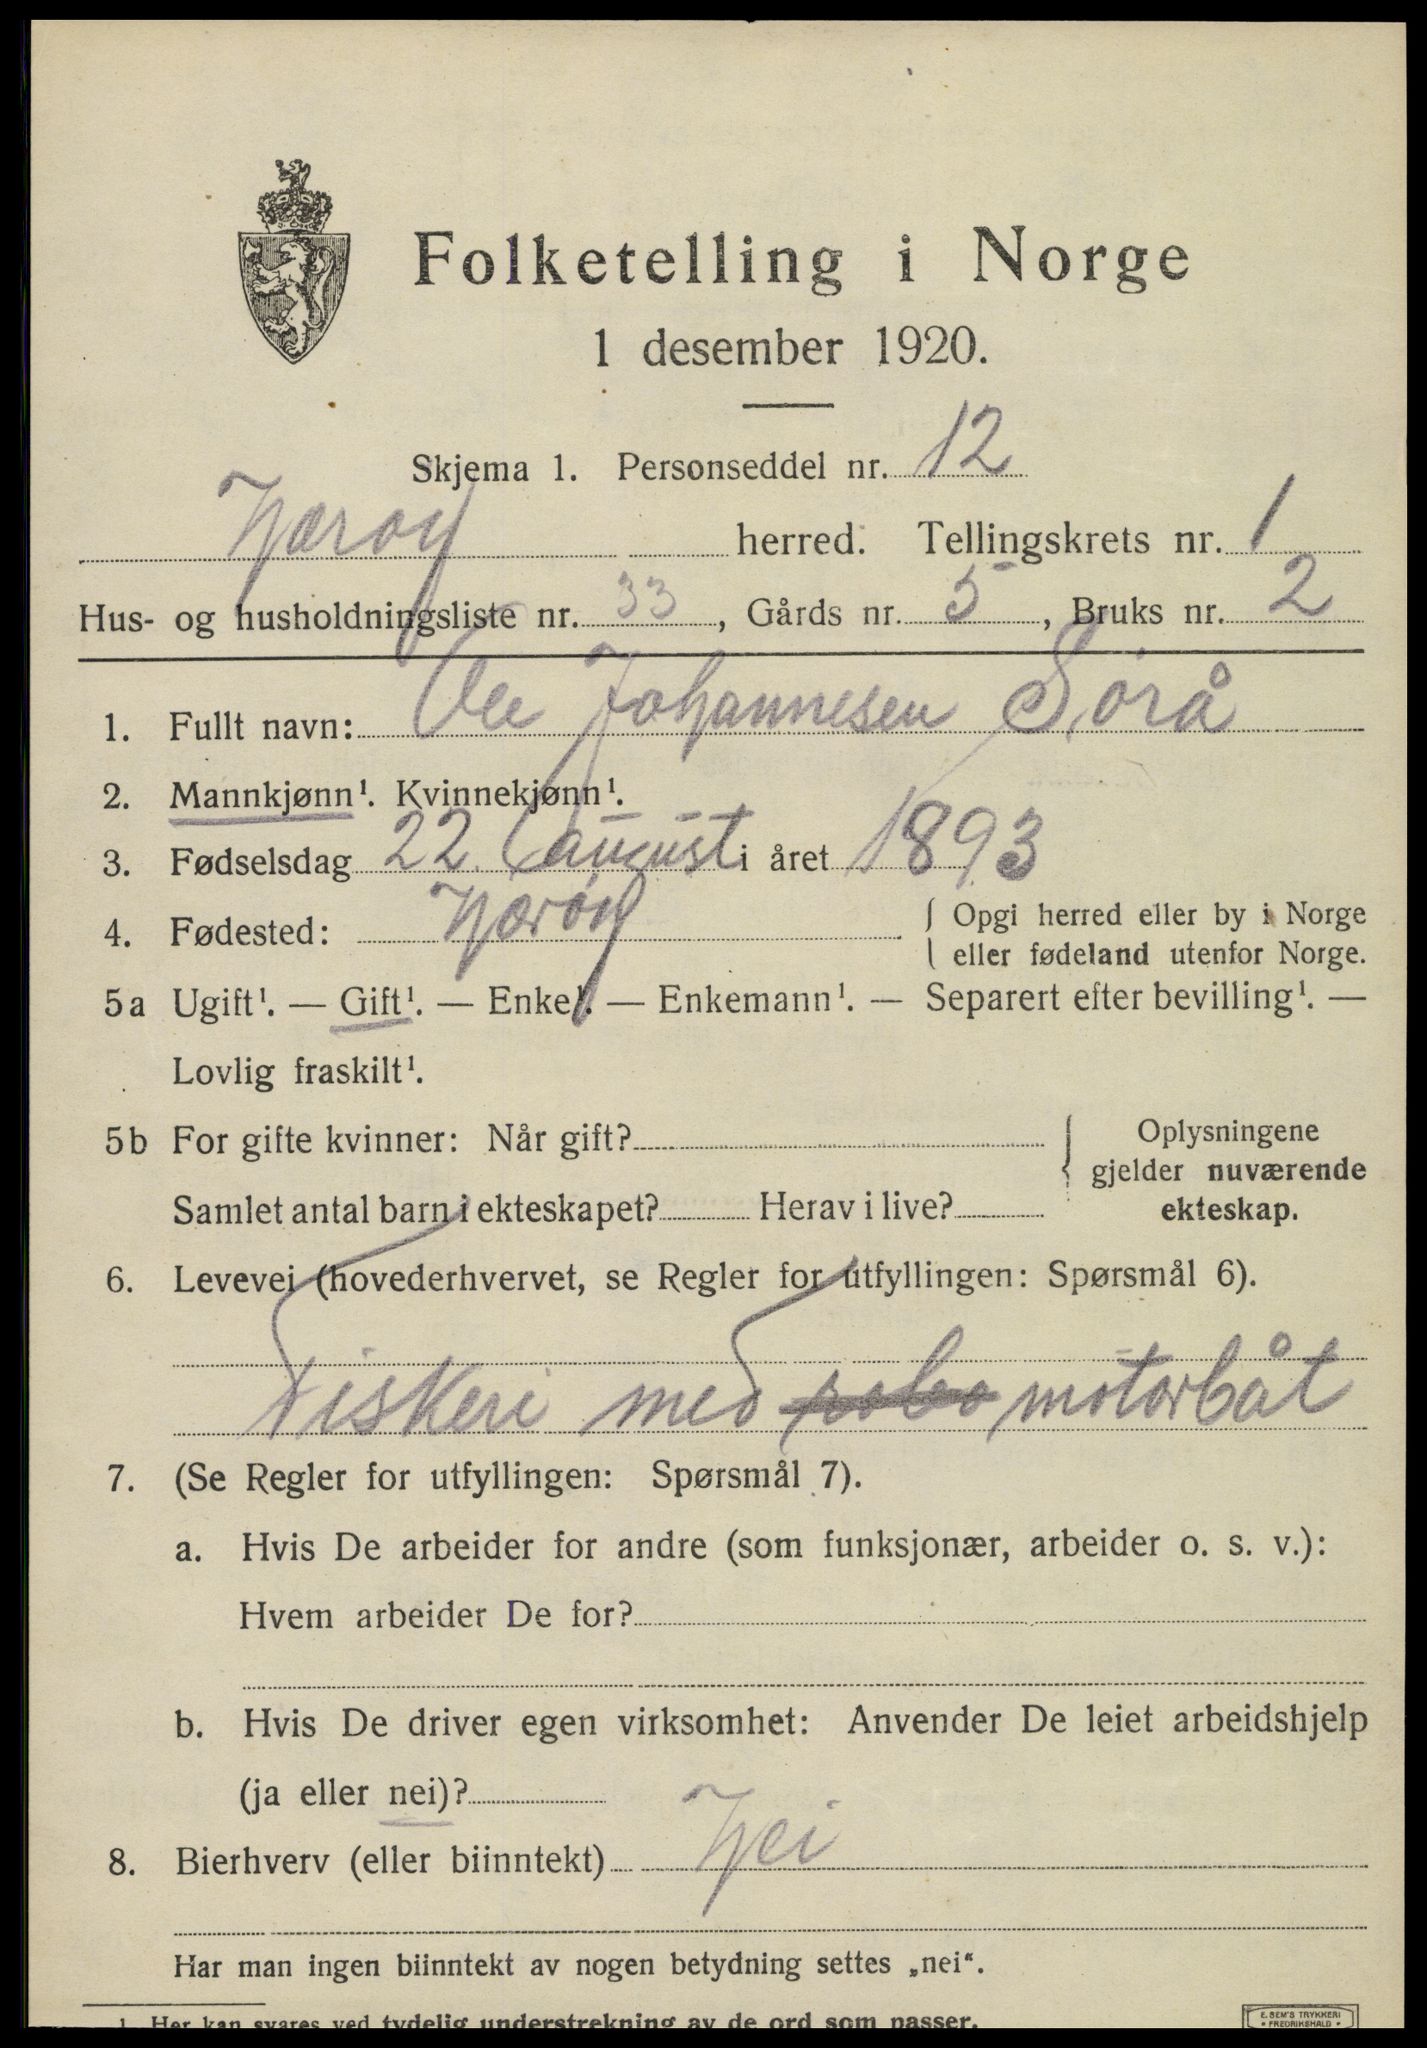 Folketelling i Norge
1 desember 1920.
Skjema 1. Personseddel nr. 12
Nærøy herred. Tellingskrets nr. 1
Hus- og husholdningsliste nr. 33, Gårds nr. 5, Bruks nr. 2
1. Fullt navn: Ole Johannesen Sörå
2. Mannkjønn¹. Kvinnekjønn¹.
3. Fødselsdag 22. august i året 1893
4. Fødested: Næröy { Opgi herred eller by i Norge
eller fødeland utenfor Norge.
5a Ugift¹. — Gift¹. — Enke¹. — Enkemann¹. — Separert efter bevilling¹. —
Lovlig fraskilt¹.
5b For gifte kvinner: Når gift? { Oplysningene
gjelder nuværende
Samlet antal barn i ekteskapet? Herav i live? ekteskap.
6. Levevei (hovederhvervet, se Regler for utfyllingen: Spørsmål 6).
Fiskeri med motorbåt
7. (Se Regler for utfyllingen: Spørsmål 7).
a. Hvis De arbeider for andre (som funksjonær, arbeider o. s. v.):
Hvem arbeider De for?
b. Hvis De driver egen virksomhet: Anvender De leiet arbeidshjelp
(ja eller nei)?
8. Bierhverv (eller biinntekt) Nei
Har man ingen biinntekt av nogen betydning settes „nei“.
1 Her kan svares ved tydelig understrekning av de ord som passer.
E. SEM'S TRYKKERI
• FREDRIKSHALD •